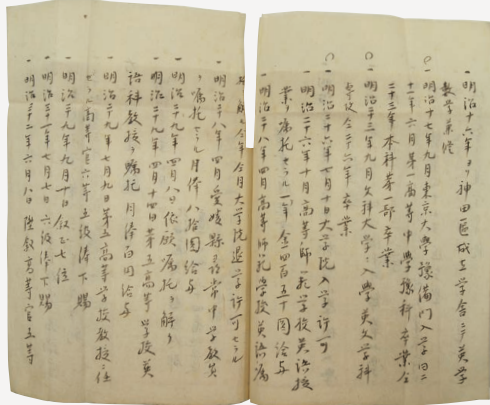 一 明治十六年ヨリ神田區成立学舎ニテ英学
数学兼修
一 明治十七年九月東京大學豫備門入学同二
十一年六月第一高等中學豫科卒業仝
二十三年本科第一部卒業
一 明治二十三年九月文科大学ヘ入學英文学科
専攻仝二十六年卒業
一 明治二十六年七月十日大学院入学許可
一 明治二十六年十月高等師範学校英語授
業ヲ嘱托セラル一年金四百五十圓給与
一 明治二十八年四月高等師範学校英語嘱
仝月大学院退学許可セラル
一 明治二十八年四月愛媛縣尋常中学教員
ヲ嘱托セラル月俸八拾圓給与
一 明治二十九年四月八日依願嘱托ヲ解ク
一 明治二十九年四月十四日第五高等学校英
語科教授ヲ嘱托月俸百圓給与
一 明治二十九年七月九日第五高等学校教授ニ任
セラル高等官六等五級俸下賜
一 明治二十九年九月十日叙正七位
一 明治三十一年七月七日六級俸下賜
一 明治三十二年六月八日陞叙高等官五等